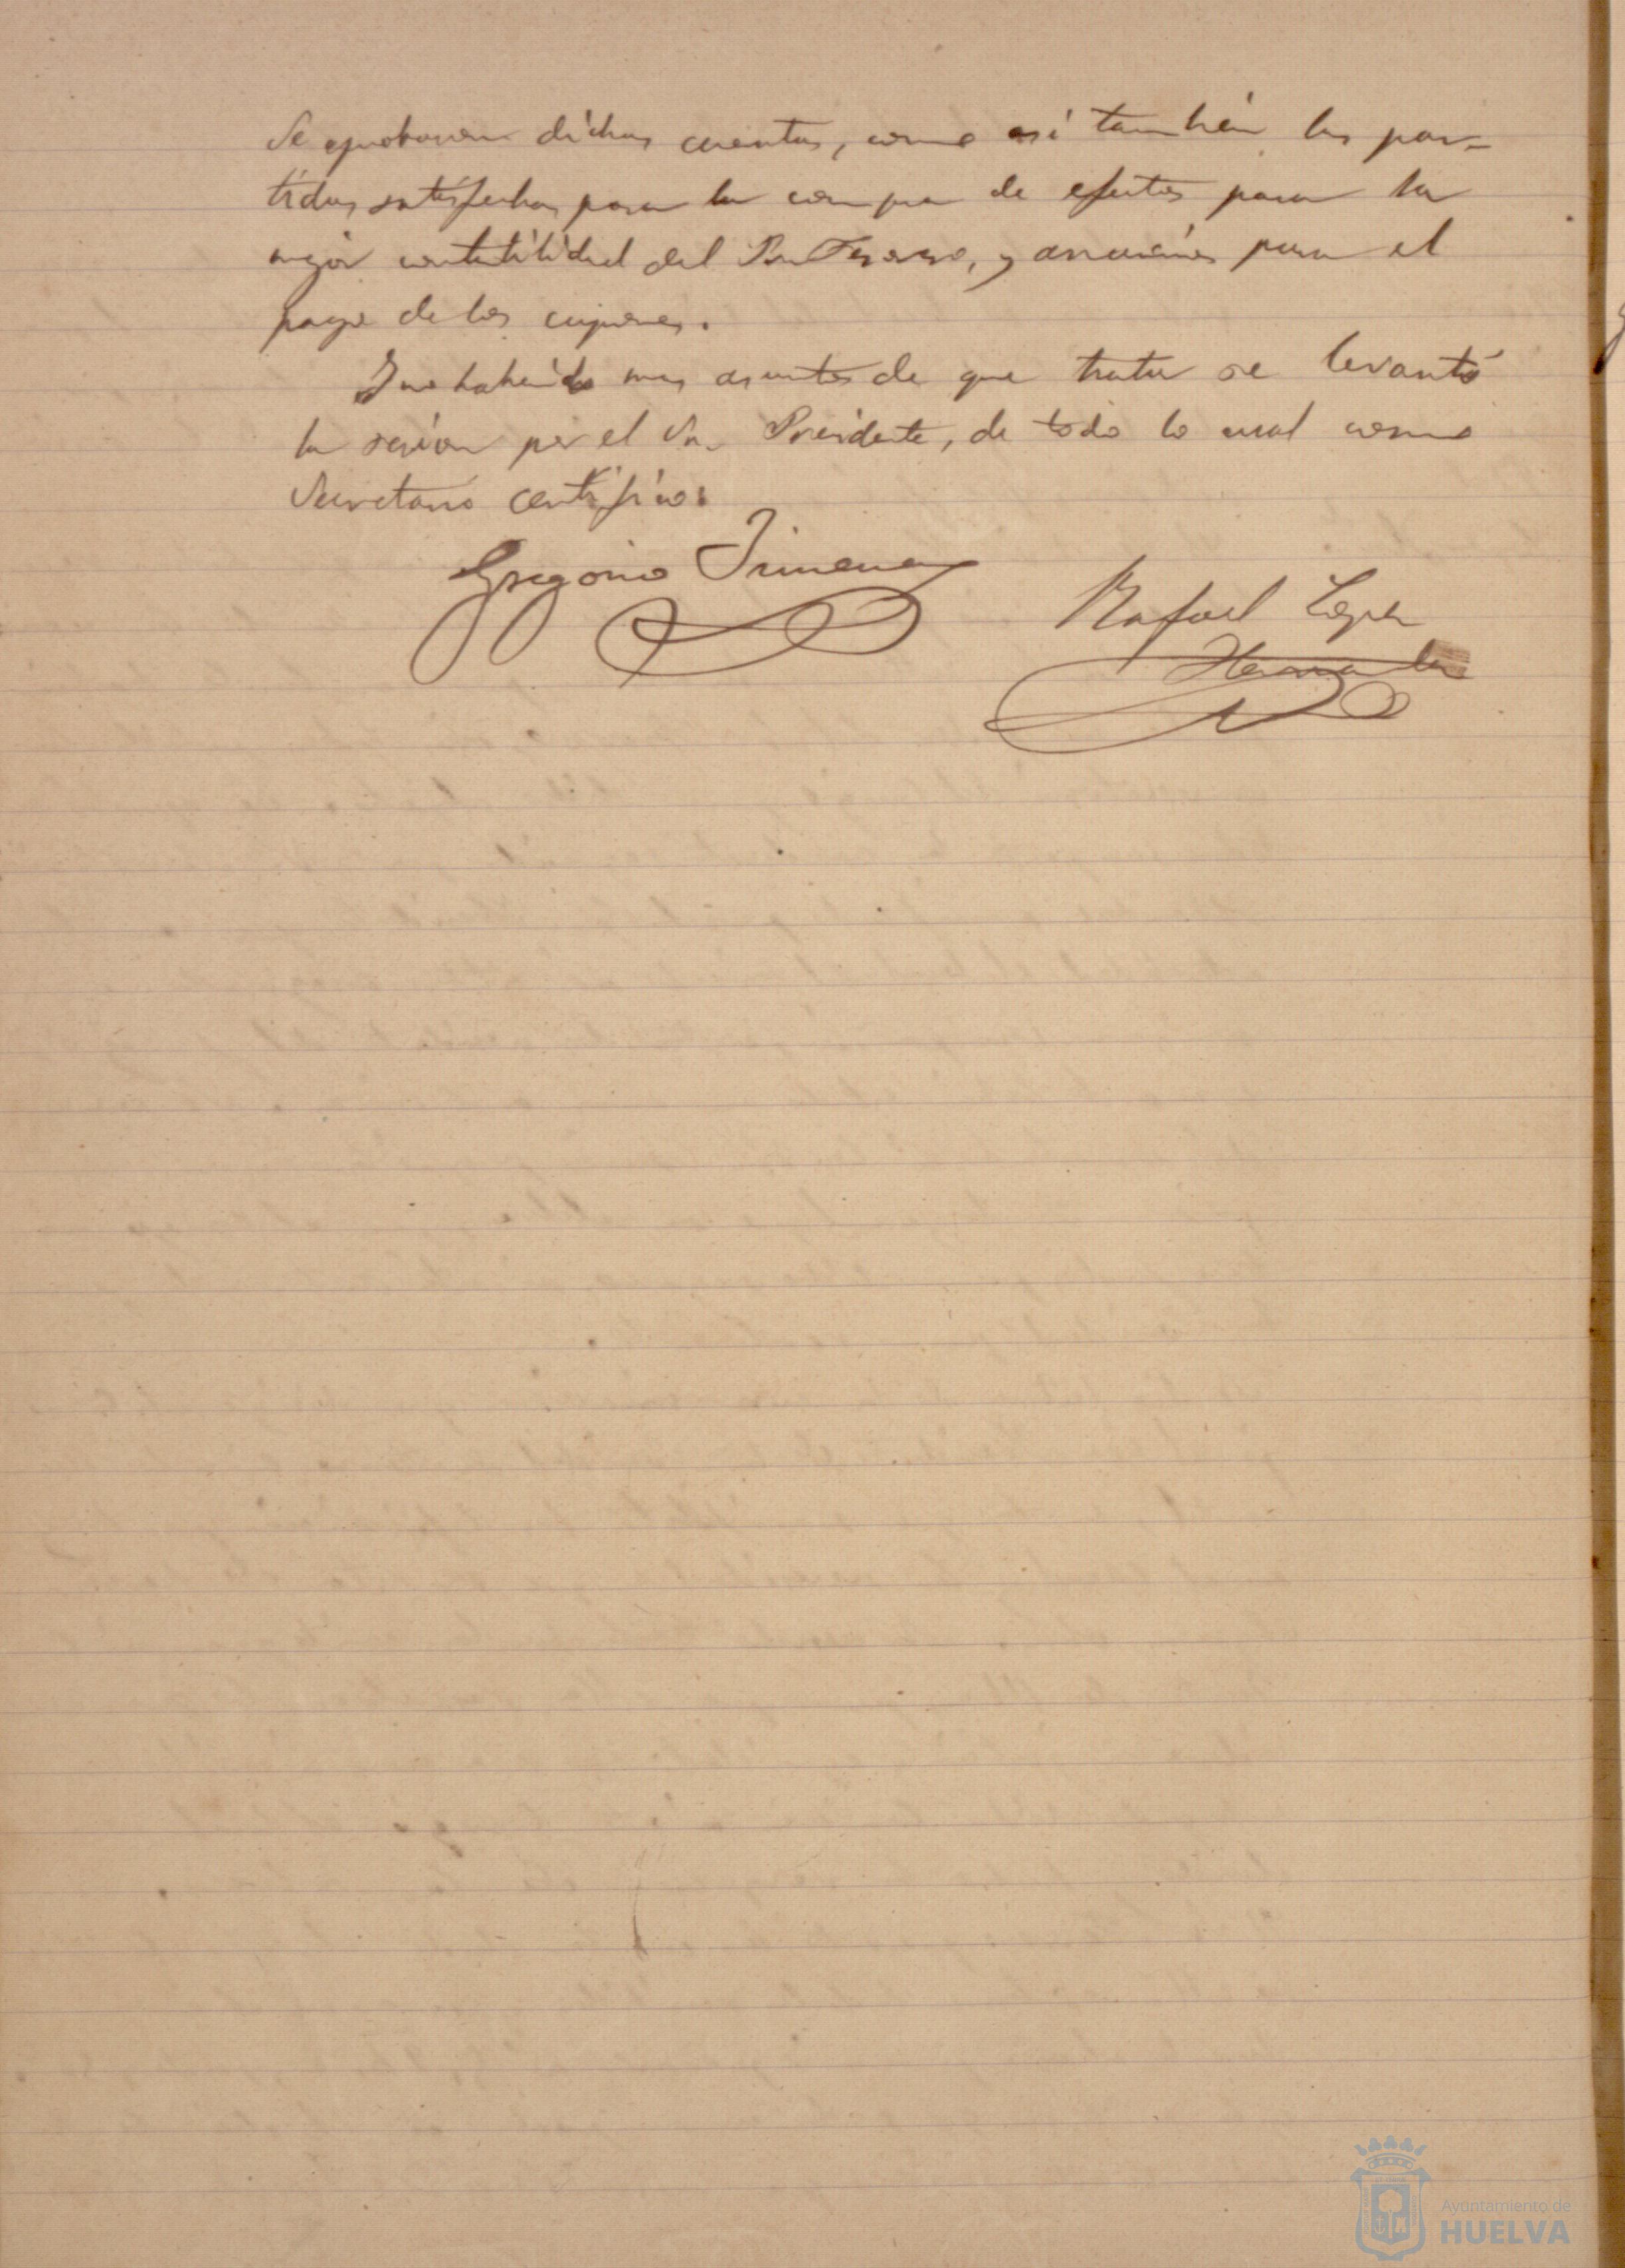 Se aprobaron dichas cuentas, como asi también las par-
tidas satisfechas para la compra de efectos para la
mejor contabilidad del Sr Tesorero, y anuncios para el
pago de los cupones.
Y no habiendo mas asuntos de que tratar se levantó
la sesion por el Sr. Presidente, de todo lo cual como
Secretario certifico:
Gregorio Jimenez
Rafael Lopez
Hernandez
Ayuntamiento de
HUELVA